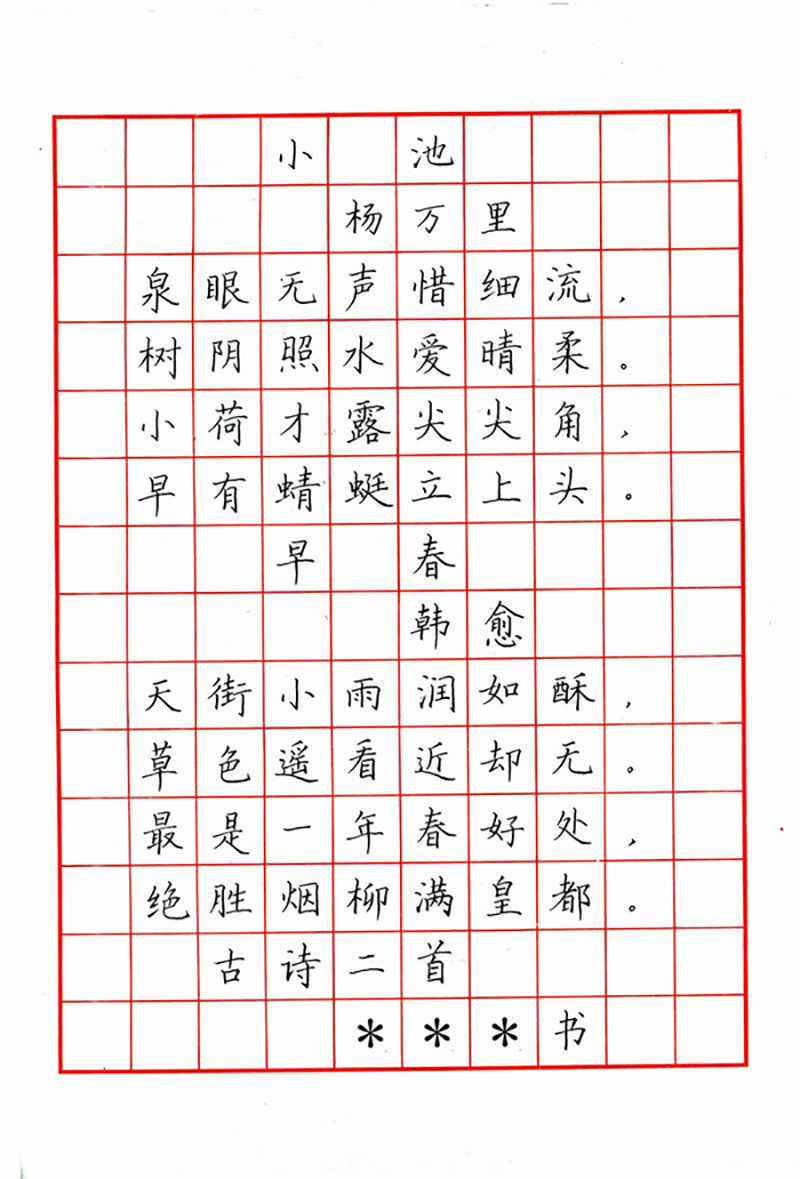 小池
杨万里
泉眼无声惜细流，
树阴照水爱晴柔。
小荷才露尖尖角，
早有蜻蜓立上头。
早春
韩愈
天街小雨润如酥，
草色遥看近却无。
最是一年春好处，
绝胜烟柳满皇都。
古诗二首
***书